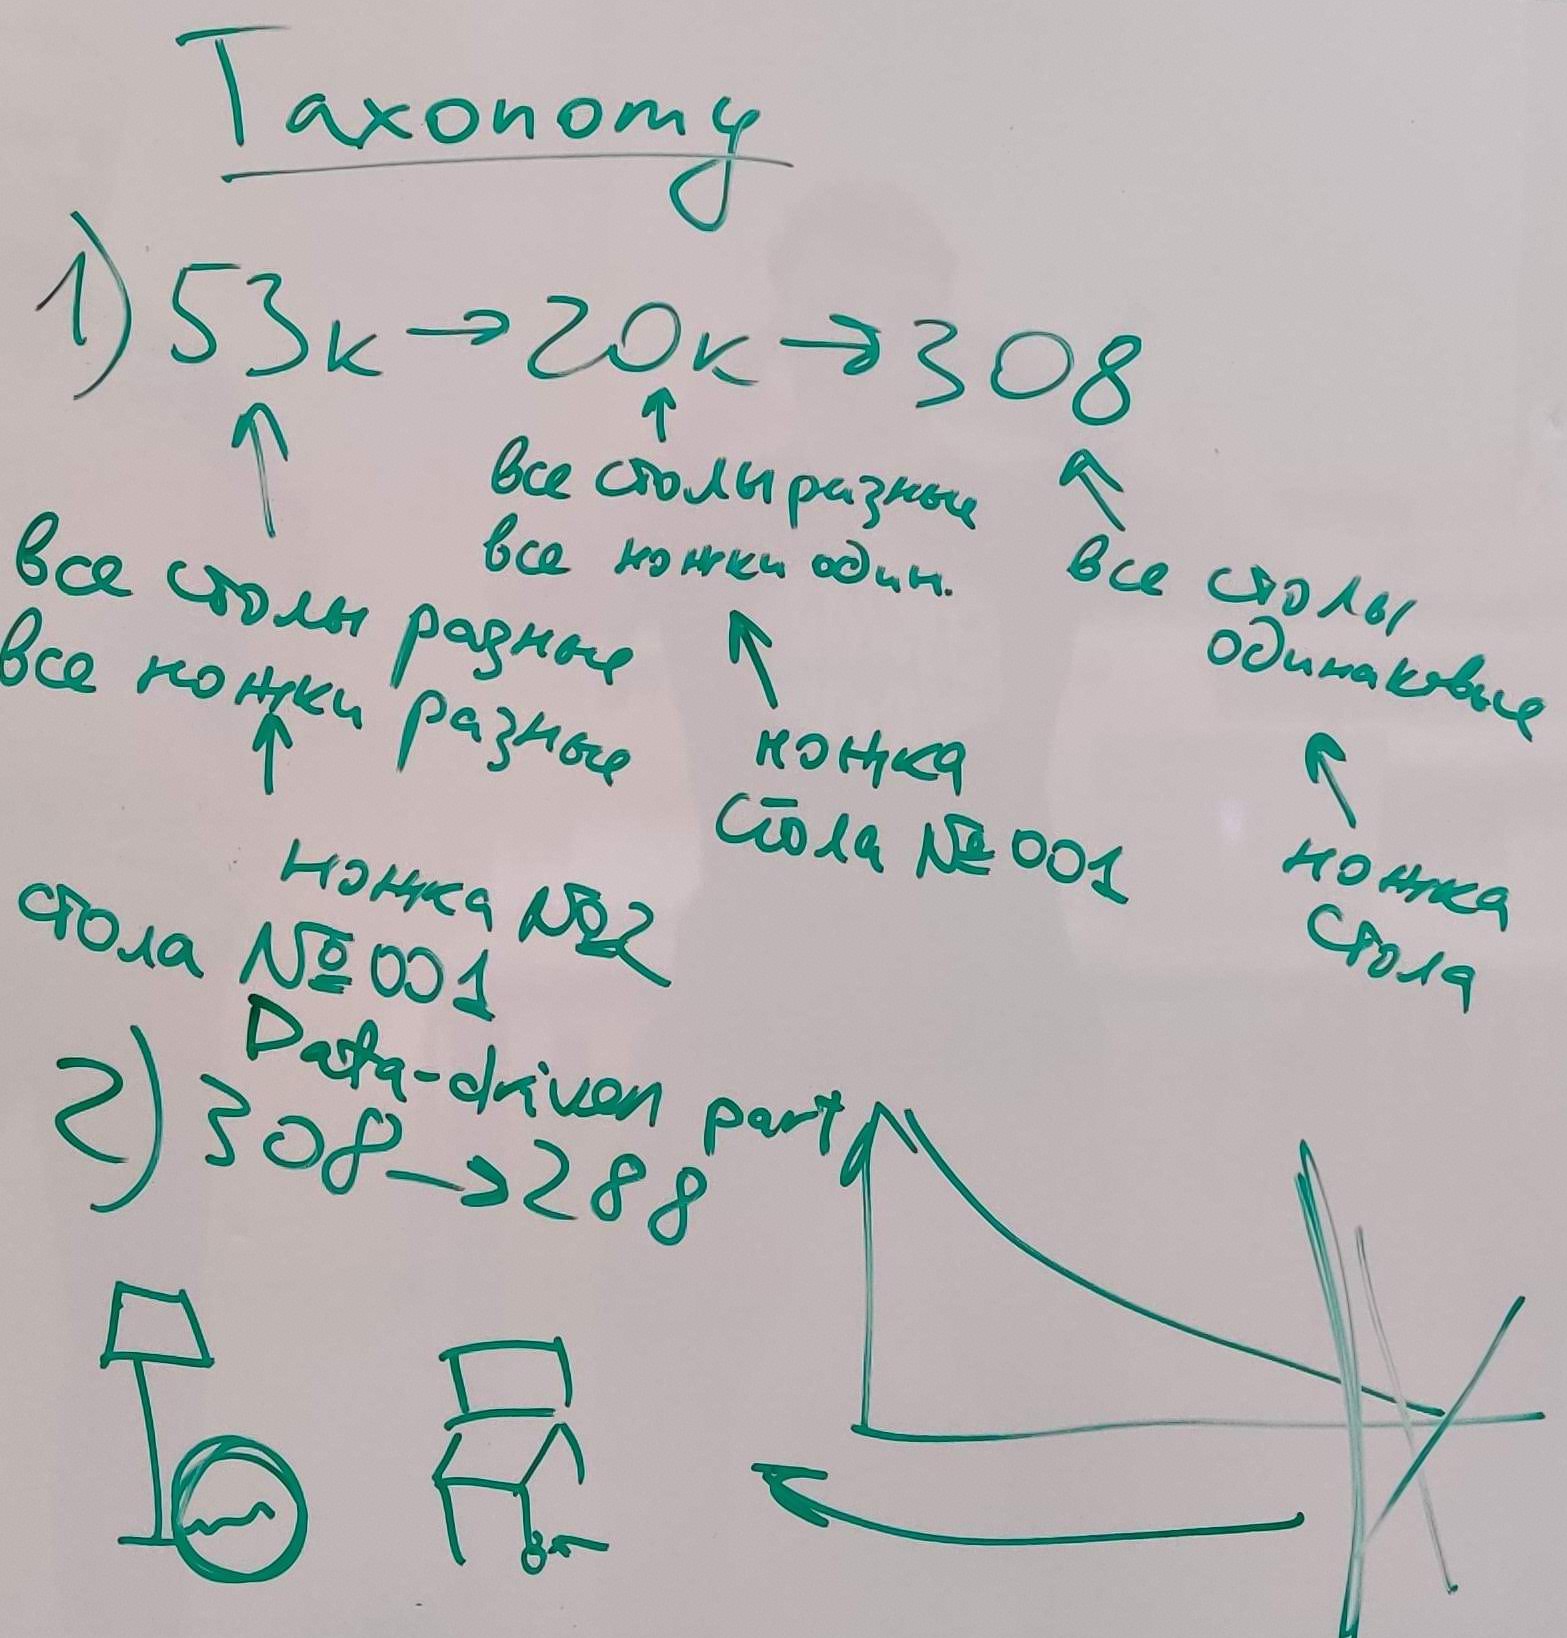 Taxonomy
1) 53к → 20к → 308
все столы разные
все ножки разные
ножка №2
стола №001
все столы разные
все ножки один.
ножка
стола №001
все столы
одинаковые
ножка
стола
Data-driven part
2) 308 → 288